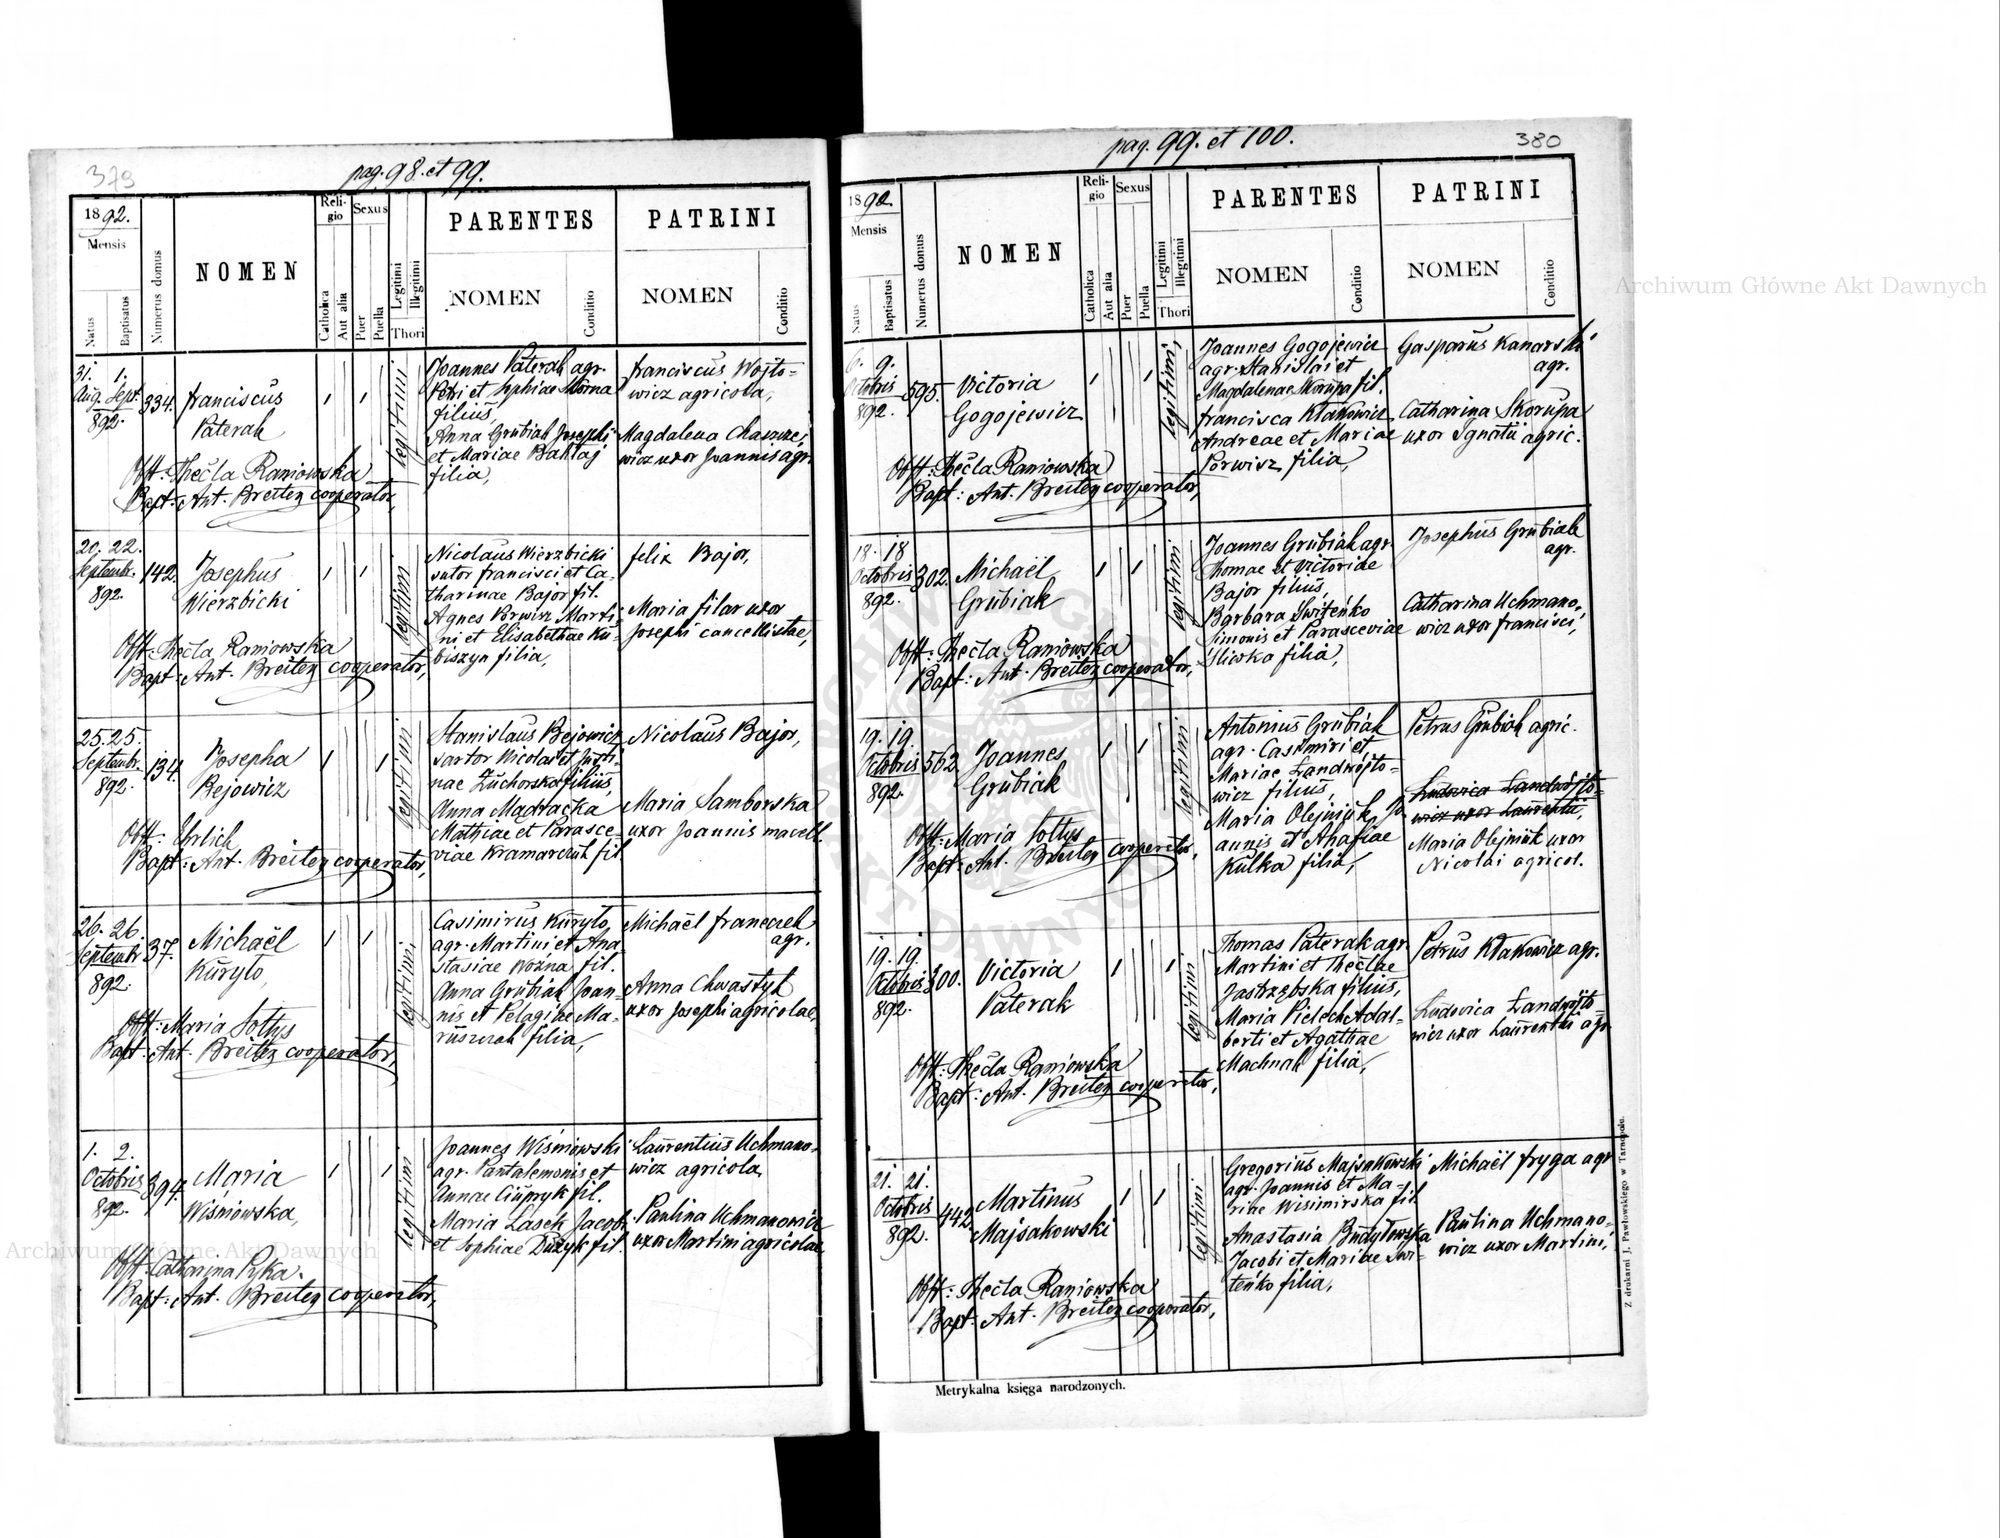 379
pag. 98. et 99.
1892.
Mensis
Natus
Baptisatus
Numerus domus
NOMEN
Reli-
gio
Catholica
Aut alia
Sexus
Puer
Puella
Legitimi
Illegitimi
Thori
PARENTES
NOMEN
Conditio
PATRINI
NOMEN
Conditio
31. 1.
Aug. Sept.
892.
334.
Franciscus
Paterak
legitimi
Joannes Paterak agr.
Petri et Sophiae
filius,
Anna Grubiak Josephi
et Mariae Bałtaj
filia,
Franciscus Wojto=
wicz agricola,
Magdalena
wicz uxor Joannis agr.
Obst: Thecla Raniowska
Bapt: Ant. Breiten cooperator,
20. 22.
Septembr.
892.
142.
Josephus
Wierzbicki
legitimi
Nicolaus Wierzbicki
sutor Francisci et Ca-
tharinae Bajor fil.
Agnes Porwisz Marti-
ni et Elisabethae Ku-
biszyn filia,
Felix Bajor,
Maria Filar uxor
Josephi cancellistae,
Obst: Thecla Raniowska
Bapt: Ant. Breiten cooperator,
25. 25.
Septembr.
892.
134.
Josepha
Bejowicz
legitimi
Stanislaus Bejowicz
sartor Nicolai et Justi-
nae Żuchorska filius,
Anna Mądracka
Mathiae et Parasce-
viae Kramarczuk fil.
Nicolaus Bajor,
Maria Samborska
uxor Joannis macell.
Obst: Ehrlich
Bapt: Ant. Breiten cooperator,
26. 26.
Septembr.
892.
37.
Michaël
Kuryło,
legitimi
Casimirus Kuryło,
agr. Martini et Ana
stasiae Woźna fil.
Anna Grubiak Joan-
nis et Pelagiae Ma-
ruszczak filia,
Michaël Franczek
agr.
Anna Chwastyk
uxor Josephi agricolae,
Obst: Maria Sołtys
Bapt: Ant. Breiten cooperator,
1. 2.
Octobris
892.
394.
Maria
Wiśniowska,
legitimi
Joannes Wiśniowski
agr. Pantalemonis et
Annae Ciupryk fil.
Maria Lasek Jacobi
et Sophiae Dużyk fil.
Laurentius Uchmano-
wicz agricola
Paulina Uchmanowicz
uxor Martini agricolae,
Obst: Catharina Pyka.
Bapt: Ant. Breiten cooperator,
pag. 99. et 100.
380
1892.
Mensis
Natus
Baptisatus
Numerus domus
NOMEN
Reli-
gio
Catholica
Aut alia
Sexus
Puer
Puella
Legitimi
Illegitimi
Thori
PARENTES
NOMEN
Conditio
PATRINI
NOMEN
Conditio
6. 9.
Octobris
892.
595.
Victoria
Gogojewicz
legitimi
Joannes Gogojewicz
agr. Stanislai et
Magdalenae Skorupa fil.
Francisca Kłakowicz
Andreae et Mariae
Porwisz filia,
Gasparus Kanarski
agr.
Catharina Skorupa
uxor Ignatii agric.
Obst: Thecla Raniowska
Bapt: Ant. Breiten cooperator,
18. 18
Octobris
892.
302.
Michaël
Grubiak
legitimi
Joannes Grubiak agr.
Thomae et Victoriae
Bajor filius,
Barbara Switeńko
Simonis et Parasceviae
Śliwka filia,
Josephus Grubiak
agr.
Catharina Uchmano-
wicz uxor Francisci,
Obst: Thecla Raniowska
Bapt: Ant. Breiten cooperator,
19. 19.
Octobris
892.
562.
Joannes
Grubiak
legitimi
Antonius Grubiak
agr. Casimiri et
Mariae Landwójto=
wicz filius,
Maria Olejnik Jo-
annis et Ahafiae
Kulka filia,
Petrus Grubiak agric.
Ludovica Landwójto-
wicz uxor Laurentii,
Maria Olejnik uxor
Nicolai agricol.
Obst: Maria Sołtys
Bapt: Ant. Breiten cooperator,
19. 19.
Octobris
892.
300.
Victoria
Paterak
legitimi
Thomas Paterak agr.
Martini et Theclae
Jastrzębska filius,
Maria Pielech Adal-
berti et Agathae
Machnak filia,
Petrus Kłakowicz agr.
Ludovica Landwójto=
wicz uxor Laurentii agr.
Obst: Thecla Raniowska
Bapt: Ant. Breiten cooperator,
21. 21.
Octobris
892.
442.
Martinus
Majsakowski
legitimi
Gregorius Majsakowski
agr. Joannis et Ma-
riae Wisimirska fil.
Anastasia Budyłowska
Jacobi et Mariae Swi-
teńko filia,
Michaël Fryga agr.
Paulina Uchmano-
wicz uxor Martini,
Obst: Thecla Raniowska
Bapt: Ant. Breiten cooperator,
Metrykalna księga narodzonych.
Z drukarni J. Pawłowskiego w Tarnopolu.
Archiwum Główne Akt Dawnych
Archiwum Główne Akt Dawnych